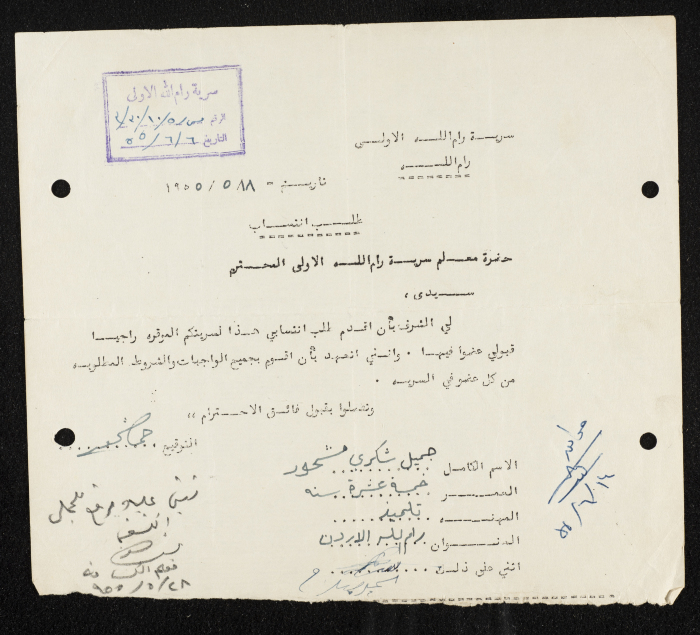 سرية رام الله الاولى
الرقم س ر/٥/١٠/٢٠/٤
التاريخ ٦/٦/٥٥
سرية رام الله الاولى
رام الله
تاريخ - ٨٨ ٥ / ١٩٥٥
طلب انتساب
حضرة معلم سرية رام الله الاولى المحترم
سيدى ،
لي الشرف بأن اقدم طلب انتسابي هذا لسريتكم الموقره راجيا
قبولي عضوا فيها ٠ وانني اتعهد بأن اقوم بجميع الواجبات والشروط المطلوبه
من كل عضو في السريه ٠
وتفضلوا بقبول فائق الاحترام ،،
التوقيع
الاسم الكامل جميل شكري مشحور
العمر خمسة عشرة سنه
المهنه تلميذ
العنوان رام الله الاردن
اثني على ذلك
٢٨/٥/٩٥٥
١٤/٦/٥٥